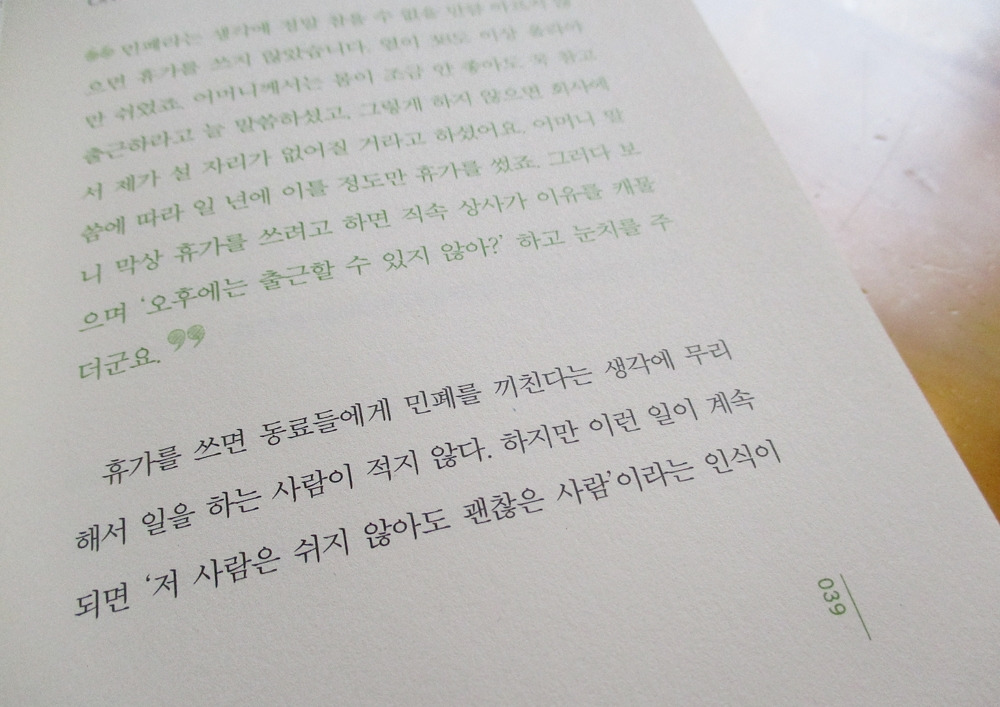 민폐라는 생각에 정말 참을 수 없을 만큼 아프지 않
으면 휴가를 쓰지 않았습니다. 열이 38도 이상 올라야
만 쉬었죠. 어머니께서는 몸이 조금 안 좋아도 꾹 참고
출근하라고 늘 말씀하셨고, 그렇게 하지 않으면 회사에
서 제가 설 자리가 없어질 거라고 하셨어요. 어머니 말
씀에 따라 일 년에 이틀 정도만 휴가를 썼죠. 그러다 보
니 막상 휴가를 쓰려고 하면 직속 상사가 이유를 캐물
으며 ‘오후에는 출근할 수 있지 않아?’ 하고 눈치를 주
더군요.”
휴가를 쓰면 동료들에게 민폐를 끼친다는 생각에 무리
해서 일을 하는 사람이 적지 않다. 하지만 이런 일이 계속
되면 ‘저 사람은 쉬지 않아도 괜찮은 사람’이라는 인식이
039